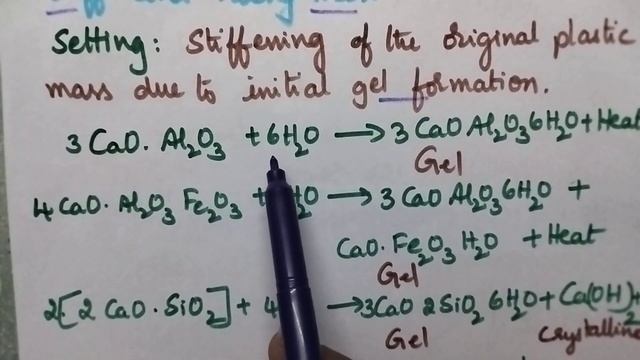 Setting: Stiffening of the original plastic
mass due to initial gel formation.
3 CaO. Al₂O₃ + 6H₂O → 3 CaO Al₂O₃ 6H₂O + Heat
Gel
4 CaO. Al₂O₃ Fe₂O₃ + H₂O → 3 CaO Al₂O₃ 6H₂O +
CaO. Fe₂O₃ H₂O + Heat
Gel
2[2 CaO. SiO₂] + 4 → 3CaO 2SiO₂ 6H₂O + Ca(OH)₂
Gel crystalline